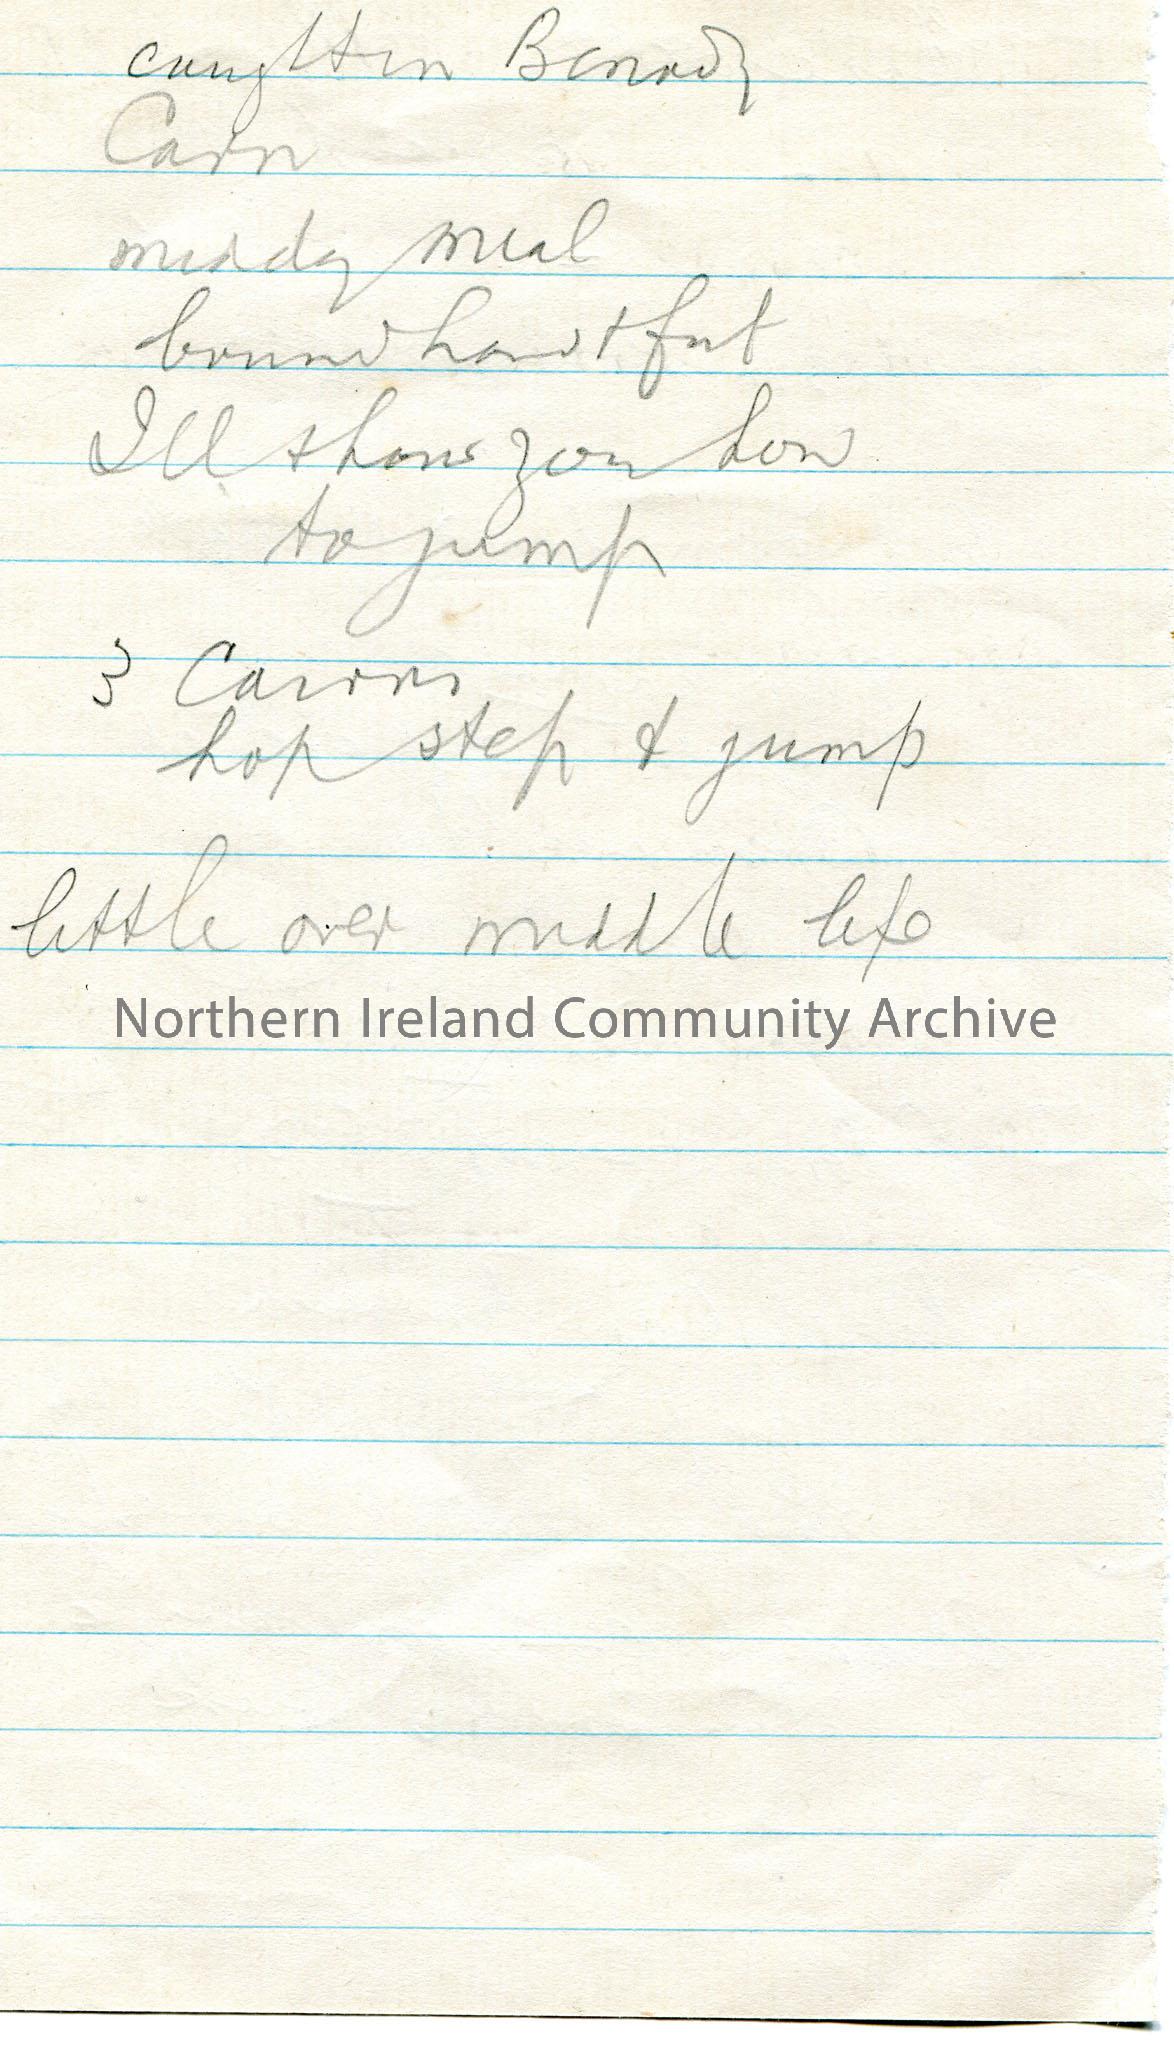 caught in Benady
Cairn
midday meal
bound hand & foot
I'll show you how
to jump
3 Cairns
hop step & jump
little over middle life
Northern Ireland Community Archive